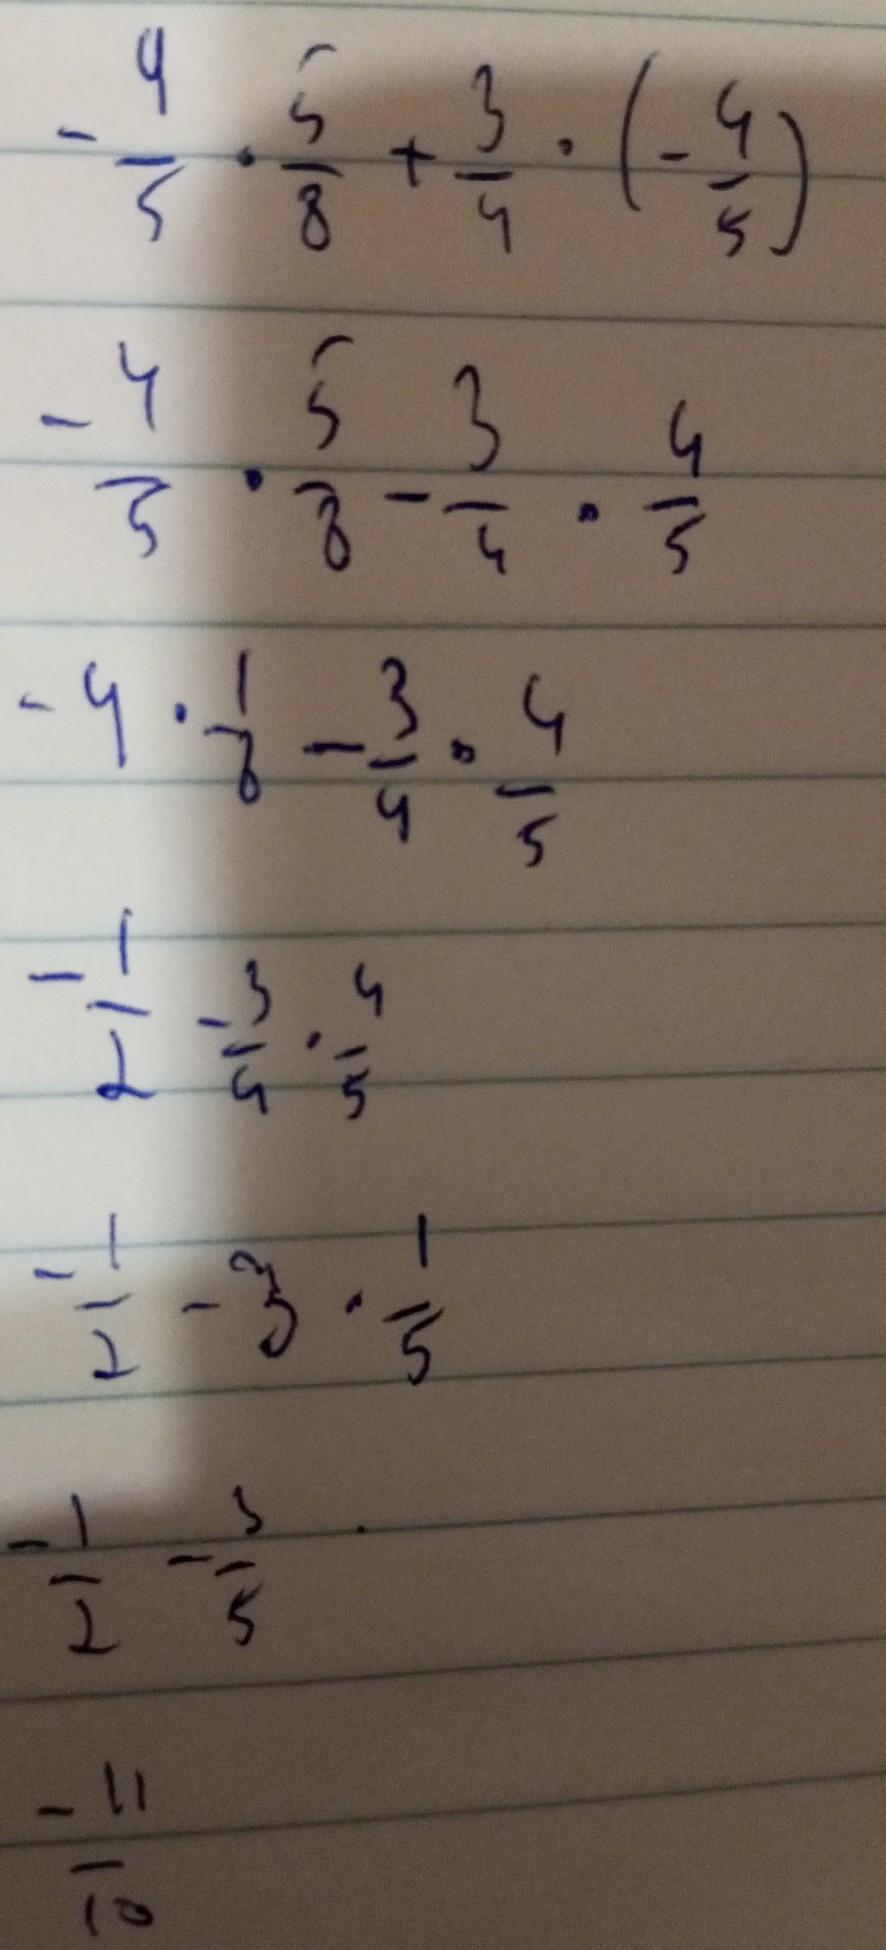 -4/5 · 5/8 + 3/4 · (-4/5)
-4/5 · 5/8 - 3/4 · 4/5
-4 · 1/8 - 3/4 · 4/5
-1/2 - 3/4 · 4/5
-1/2 - 3 · 1/5
-1/2 - 3/5
-11/10